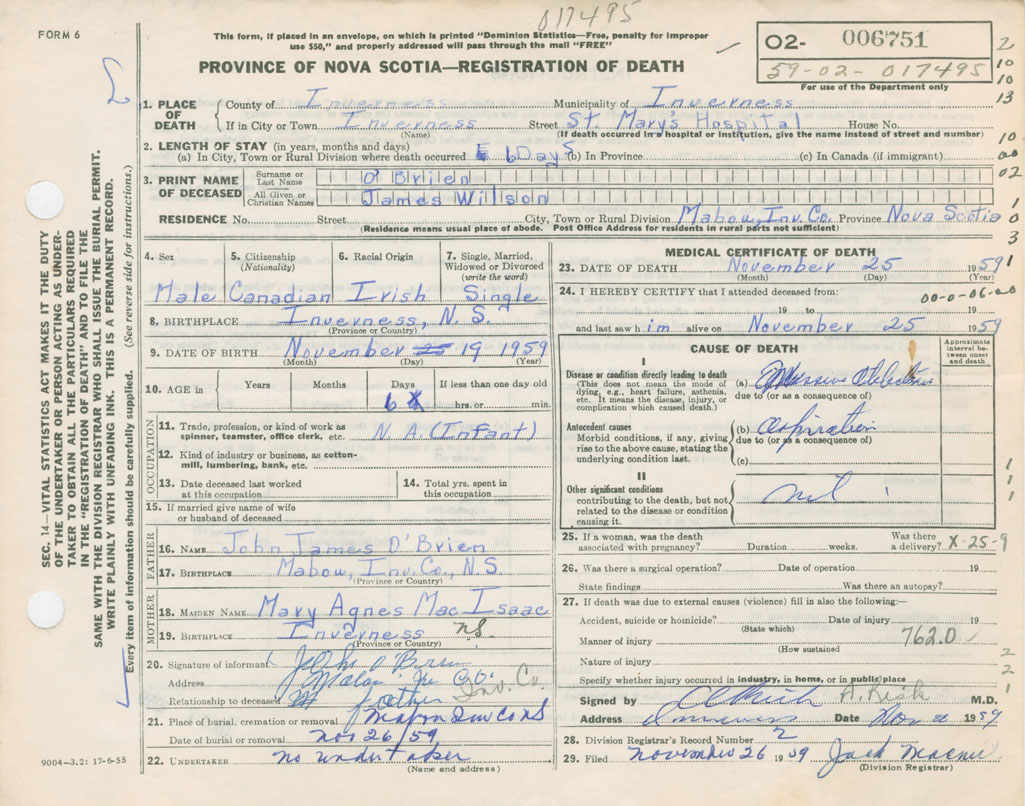 017495
FORM 6
This form, if placed in an envelope, on which is printed "Dominion Statistics—Free, penalty for improper
use $50," and properly addressed will pass through the mail "FREE"
02- 006751
59-02-017495
For use of the Department only
PROVINCE OF NOVA SCOTIA—REGISTRATION OF DEATH
1. PLACE OF DEATH
County of Inverness Municipality of Inverness
If in City or Town Inverness Street St. Mary's Hospital House No.
(Name) (If death occurred in a hospital or institution, give the name instead of street and number)
2. LENGTH OF STAY (in years, months and days)
(a) In City, Town or Rural Division where death occurred 6 Days (b) In Province (c) In Canada (if immigrant)
3. PRINT NAME OF DECEASED
Surname or Last Name O'Brien
All Given or Christian Names James Willson
RESIDENCE No. Street City, Town or Rural Division Mabou, Inv. Co. Province Nova Scotia
(Residence means usual place of abode. Post Office Address for residents in rural parts not sufficient)
2
10
10
13
10
00
02
1
0
3
1
4. Sex 5. Citizenship (Nationality) 6. Racial Origin 7. Single, Married, Widowed or Divorced (write the word)
Male Canadian Irish Single
8. BIRTHPLACE Inverness, N.S.
(Province or Country)
9. DATE OF BIRTH November 25 19 1959
(Month) (Day) (Year)
10. AGE in Years Months Days If less than one day old
6 hrs. or min.
OCCUPATION
11. Trade, profession, or kind of work as spinner, teamster, office clerk, etc. N.A. (Infant)
12. Kind of industry or business, as cotton-mill, lumbering, bank, etc.
13. Date deceased last worked at this occupation
14. Total yrs. spent in this occupation
15. If married give name of wife or husband of deceased
FATHER
16. NAME John James O'Brien
17. BIRTHPLACE Mabou, Inv. Co., N.S.
(Province or Country)
MOTHER
18. MAIDEN NAME Mary Agnes Mac Isaac
19. BIRTHPLACE Inverness NS
(Province or Country)
20. Signature of informant John O Brien
Address Mabou Inv Co. Inv. Co.
Relationship to deceased father
21. Place of burial, cremation or removal Mabou Inv Co NS
Date of burial or removal Nov 26/59
22. UNDERTAKER no undertaker
(Name and address)
MEDICAL CERTIFICATE OF DEATH
23. DATE OF DEATH November 25 1959
(Month) (Day) (Year)
24. I HEREBY CERTIFY that I attended deceased from:
00-0-06-00
19 to 19
and last saw him alive on November 25 1959
CAUSE OF DEATH
Approximate interval between onset and death
I
Disease or condition directly leading to death
(This does not mean the mode of dying, e.g., heart failure, asthenia, etc. It means the disease, injury, or complication which caused death.)
(a) Massive Atelectasis
due to (or as a consequence of)
Antecedent causes
Morbid conditions, if any, giving rise to the above cause, stating the underlying condition last.
(b) aspiration
due to (or as a consequence of)
(c)
II
Other significant conditions
contributing to the death, but not related to the disease or condition causing it.
nil
1
1
1
25. If a woman, was the death associated with pregnancy? Duration weeks. Was there a delivery? X-25-9
26. Was there a surgical operation? Date of operation 19
State findings Was there an autopsy?
27. If death was due to external causes (violence) fill in also the following:—
Accident, suicide or homicide? Date of injury 19
(State which)
Manner of injury 762.0
(How sustained
Nature of injury
Specify whether injury occurred in industry, in home, or in public place
2
2
1
Signed by A. Rish M.D.
Address Inverness Date Nov 1959
28. Division Registrar's Record Number 2
29. Filed November 26 1959
(Division Registrar)
SEC. 14—VITAL STATISTICS ACT MAKES IT THE DUTY
OF THE UNDERTAKER OR PERSON ACTING AS UNDER-
TAKER TO OBTAIN ALL THE PARTICULARS REQUIRED
IN THE "REGISTRATION OF DEATH" AND TO FILE THE
SAME WITH THE DIVISION REGISTRAR WHO SHALL ISSUE THE BURIAL PERMIT.
WRITE PLAINLY WITH UNFADING INK. THIS IS A PERMANENT RECORD.
Every item of information should be carefully supplied. (See reverse side for instructions.)
9004-3.2: 17-6-55